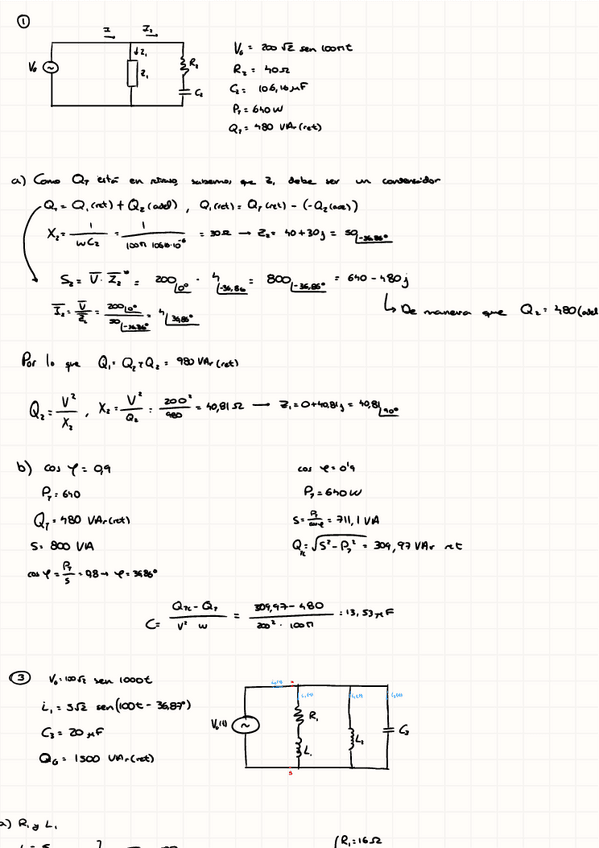 ①
I I₂
V₆ = 200√2 sen 100πt
↓Z₁ R₂
V₆ Z₁
R₂ = 40Ω
C₂
C₂ = 106,16 μF
P_T = 640 W
Q_T = 480 VAr (ret)
a) Como Q_T está en retraso, sabemos que Z₁ debe ser un condensador
Q_T = Q₁(ret) + Q₂(adel) , Q₁(ret) = Q_T(ret) - (-Q₂(adel))
X₂ = 1/(ωC₂) = 1/(100π 106,16·10⁻⁶) = 30Ω → Z₂ = 40+30j = 50∠-36,86°
S₂ = V · I₂* = 200∠0° · 4∠-36,86 = 800∠-36,86° = 640 - 480j
↳ De manera que Q₂ = 480 (adel
I₂ = V/Z₂ = 200∠0°/50∠-36,86° = 4∠36,86°
Por lo que Q₁ = Q_T + Q₂ = 980 VAr (ret)
Q₂ = V²/X₂ , X₂ = V²/Q₂ = 200²/980 = 40,81 Ω → Z₁ = 0+40,81j = 40,81∠90°
b) cos φ = 0,9
P_T = 640
Q_T = 480 VAr (ret)
S = 800 VIA
cos φ = P_T/S = 0,8 → φ = 36,86°
cos φ = 0'9
P_T = 640 W
S = P_T/cos φ = 711,1 VIA
Q_Tc = √(S² - P_T²) = 309,97 VAr ret
C = (Q_Tc - Q_T)/(V² ω) = (309,97 - 480)/(200² · 100π) = 13,53 μF
③ V₆ = 100√2 sen 1000t
i₁ = 5√2 sen(100t - 36,87°)
C₃ = 20 μF
Q₆ = 1500 VAr (ret)
V₆(t)
R₁
L₁
L₂
C₃
a) R₁ y L₁
R₁ = 16Ω